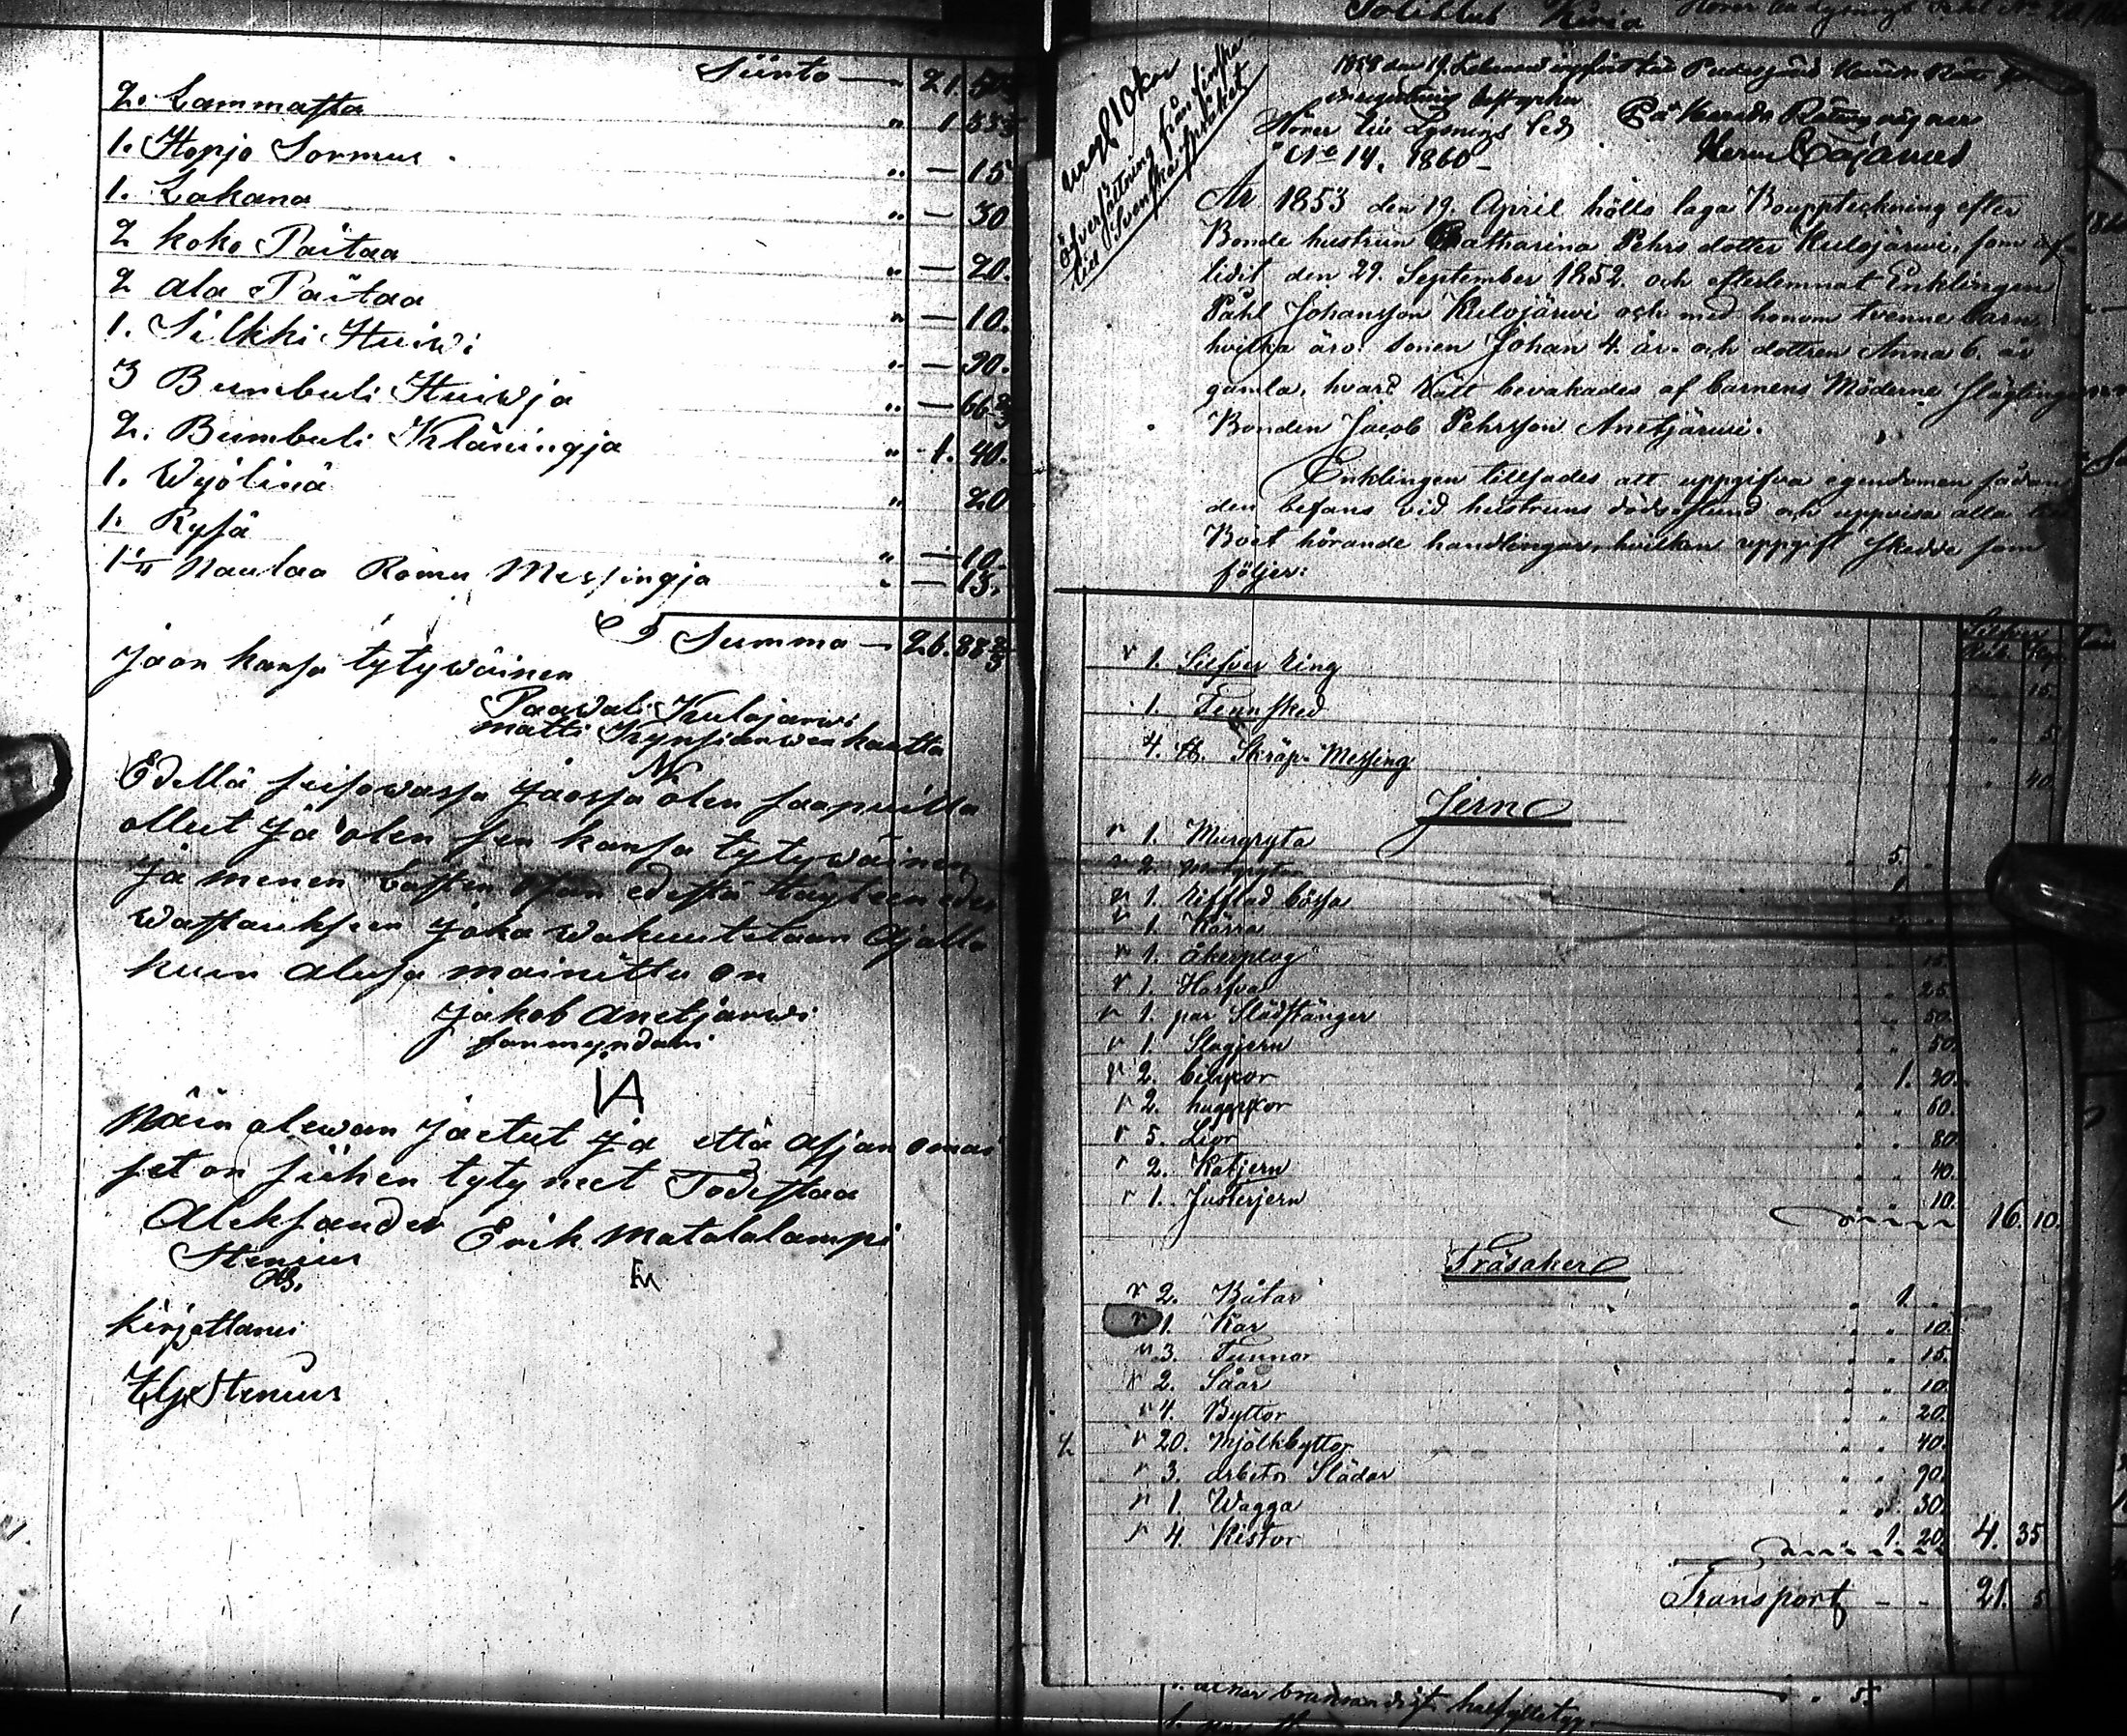 Siirto — 21. 50
2. Lammasta " 1 33 1/3
1. Hopja Sormus " — 15
1. Lakana " — 30
2 koko Paitaa " — 20.
2 ala Paitaa " — 10.
1. Silkki Huiwi " — 90.
3 Bumbuli Huiwja " — 66 2/3
2. Bumbuli Kläningja " 1. 40.
1. Wyölinä " 20
1. Rysä " — 10.
Naulaa Romu Messingja " — 15.
Summa — 26. 88 2/3
Jaon kansa tytywäinen
Paawali Kulojarwi
matti Kynsiärwen kautta
Edellä seisowassa Jaossa olen saapuilla
ollut Ja olen sen kansa tytywäinen
Ja menen Lasten osan edestä täyteen edes
wastaukseen Joka wakuutetaan Ajalla
kuin alusa mainittu on
Jakob Anetjarwi
formyndari
IA
Näin olewan Jaetut Ja että Asjan omai
set on siihen tytyneet Todistaa
Aleksander Erik Matalalampi
Stenius
AS. EM
kirjottanu
Stenius
Öfversättning från finska
till Svenska språket
1858 den 19.
Hörer till Lysnings Led På Härads Rättens vägnar
No 14. 1860 — Herm Cajanus
År 1853 den 19. April hölls laga Bouppteckning efter
Bonde hustrun Catharina Pehrs dotter Kulojärwi, som af-
lidit den 29. September 1852. och efterlemnat Enklingen
Påhl Johansson Kulojärwi och med honom tvenne barn,
hvilka äro: sonen Johan 4. år och dottren Anna 6. år
gamla, hvars rätt bevakades af barnens Möderne släglingen
Bonden Jacob Pehrsson Anetjärwi.
Enklingen tillsades att uppgifva egendomen sådan
den befans vid hustruns dödsstund och uppvisa alla till
Boet hörande handlingar, hvilken uppgift skedde som
följer:
Silfver
Rub. Kop.
1. Silfver ring 15.
1. Tennsked " 5
4. ℔. Skräp-Messing " 40.
Jern
1. Murgryta " 5. "
2
1. Refflad bössa
1. Kärra
1. åkerplog 15.
1. Harfva " " 25.
1. par Slädstänger " " 50.
1. Slagjern " " 50.
2. bilyxor " 1. 30.
2. huggyxor " " 60.
5. Liar " " 80
2. Katjern " " 40.
1. Justerjern 10. 16. 10.
Träsaker
2. Båtar " 1. "
1. Kar " " 10.
3. Tunnor " " 15.
2. Såar " " 10.
4. Byttor " " 20.
20. Mjölkbyttor " " 40.
3. arbets Slädar " " 90.
1. Wagga " " 30.
4. Kistor 1. 20. 4. 35
Transport - - 21. 5